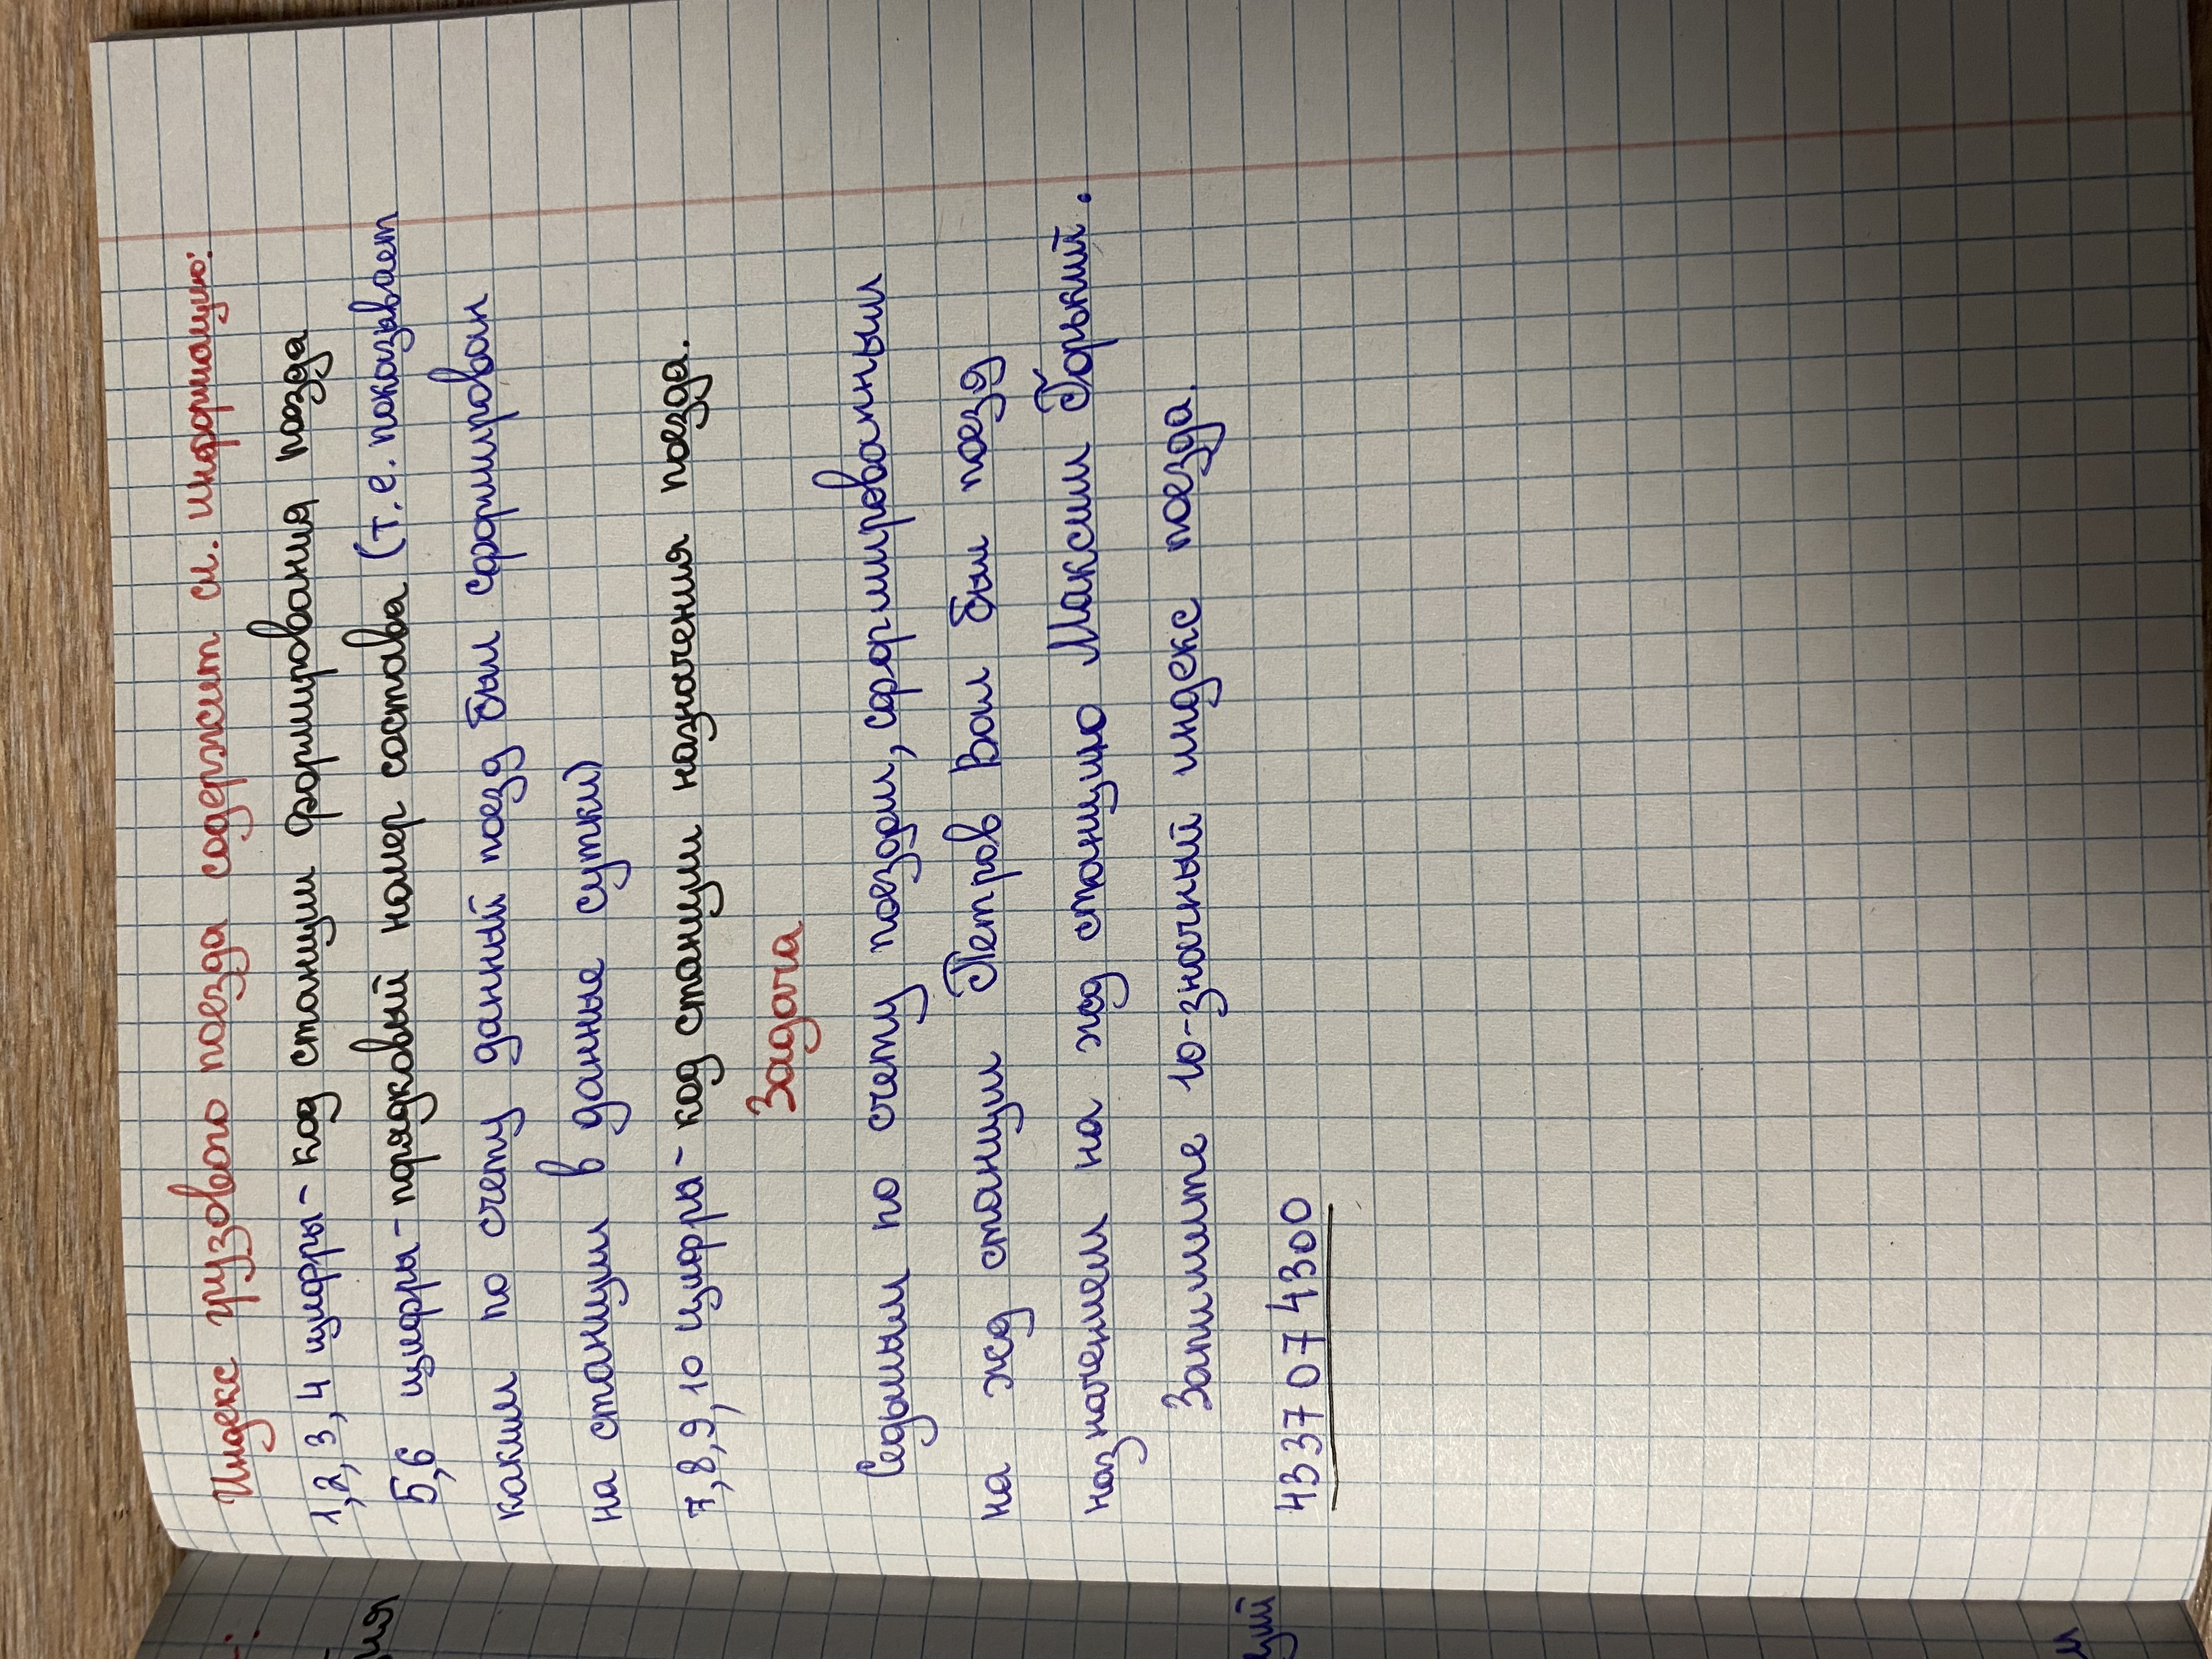 Индекс грузового поезда содержит сл. информацию:
1,2,3,4 цифры - код станции формирования поезда
5,6 цифры - порядковый номер состава (т.е. показывает
каким по счету данный поезд был сформирован
на станции в данные сутки)
7,8,9,10 цифра - код станции назначения поезда.
Задача
Седьмым по счету поездом, сформированным
на жд станции Петров Вал был поезд
назначением на жд станцию Максим Горький.
Запишите 10-значный индекс поезда.
4337 07 4300